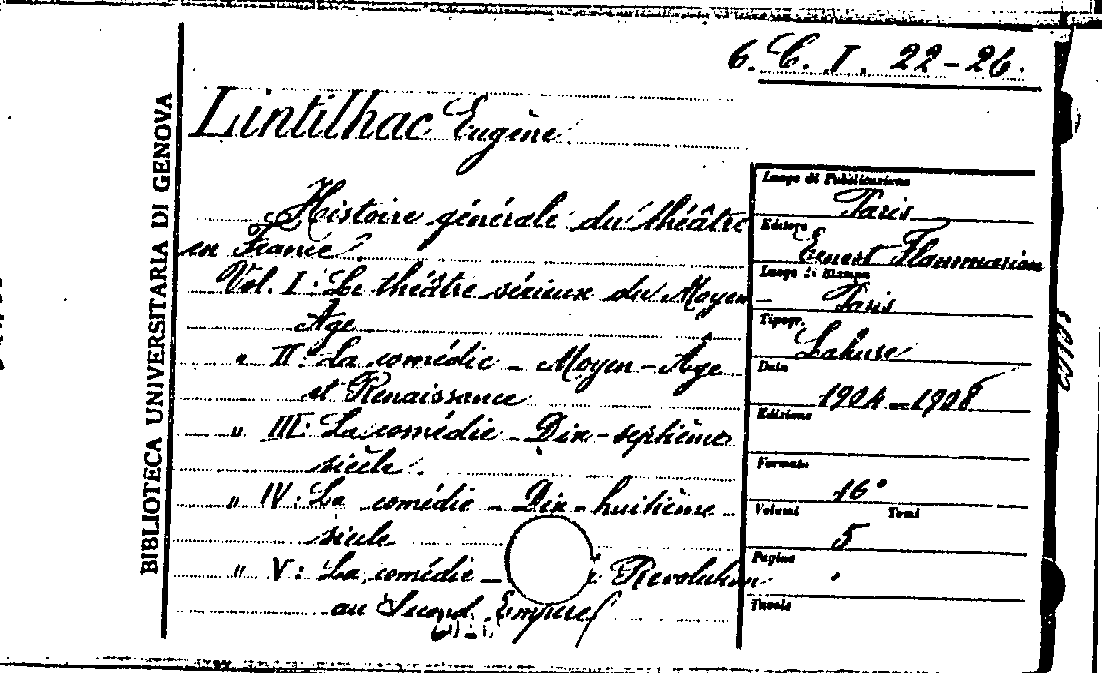 6. C. I. 22-26.
BIBLIOTECA UNIVERSITARIA DI GENOVA
Lintilhac Eugène
Histoire générale du théâtre
en France
Vol. I: Le théâtre sérieux du Moyen
Age
" II: La comédie - Moyen-Âge
et Renaissance
" III: La comédie - Dix-septième
siècle.
" IV: La comédie - Dix-huitième
siècle
" V: La comédie - Revolution
au Second Empire
Luogo di Pubblicazione
Paris
Editore
Ernest Flammarion
Luogo di Stampa
Paris
Tipogr.
Lahure
Data
1904-1908
Edizione
Formato
16°
Volumi Tomi
5
Pagine
Tavole